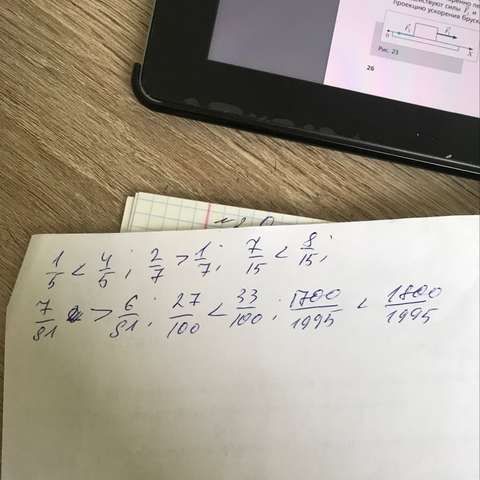 еренно пе
йствуют силы F₁ и
проекцию ускорения бруск
F₂ F₁
0 X
Рис. 23
26
1/5 < 4/5; 2/7 > 1/7; 7/15 < 8/15;
7/81 > 6/81; 27/100 < 33/100; 1700/1995 < 1800/1995